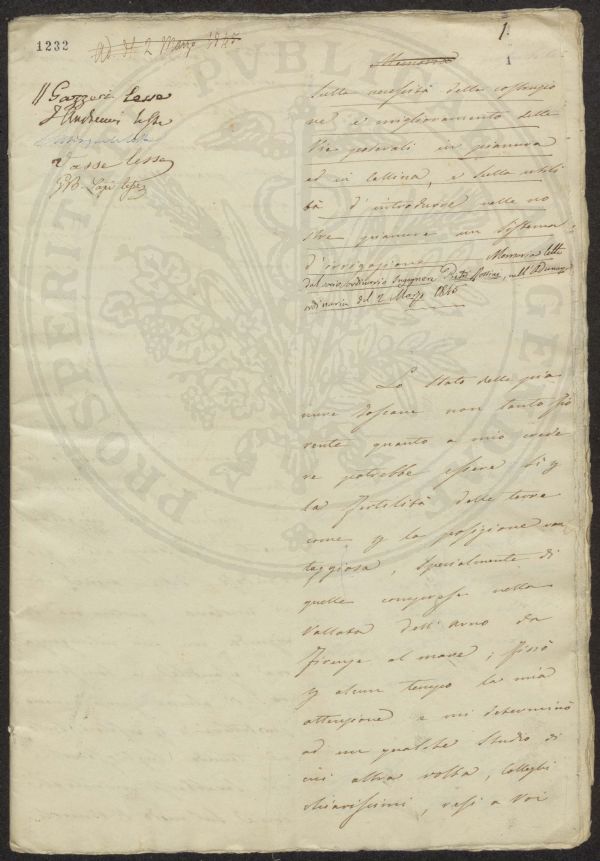 1232
Ad. 2 Marzo 1845
1.
1
Memoria
Gazzeri lesse
lesse
Vasse lesse
GB. Lapi lesse
Sulla necessità della costruzio
ne e miglioramento delle
Vie poderali in pianura
ed in collina, e sulla utili
tà d'introdurre nelle no
stre pianure un sistema
d'irrigazione Memoria letta
dal socio ordinario Ingegnere nell'Adunanza
ordinaria del 2 Marzo 1845
Lo Stato delle pia
nure Toscane non tanto fio
rente quanto a mio crede
re potrebbe essere sì p
la fertilità delle terre
come p la posizione van
taggiosa, specialmente di
quelle comprese nella
Vallata dell'Arno da
Firenze al mare; fissò
p alcun tempo la mia
attenzione e mi determinò
ad un qualche studio di
cui altra volta, Colleghi
chiarissimi, resi a Voi
PROSPERITATI PUBLICAE AUGENDAE